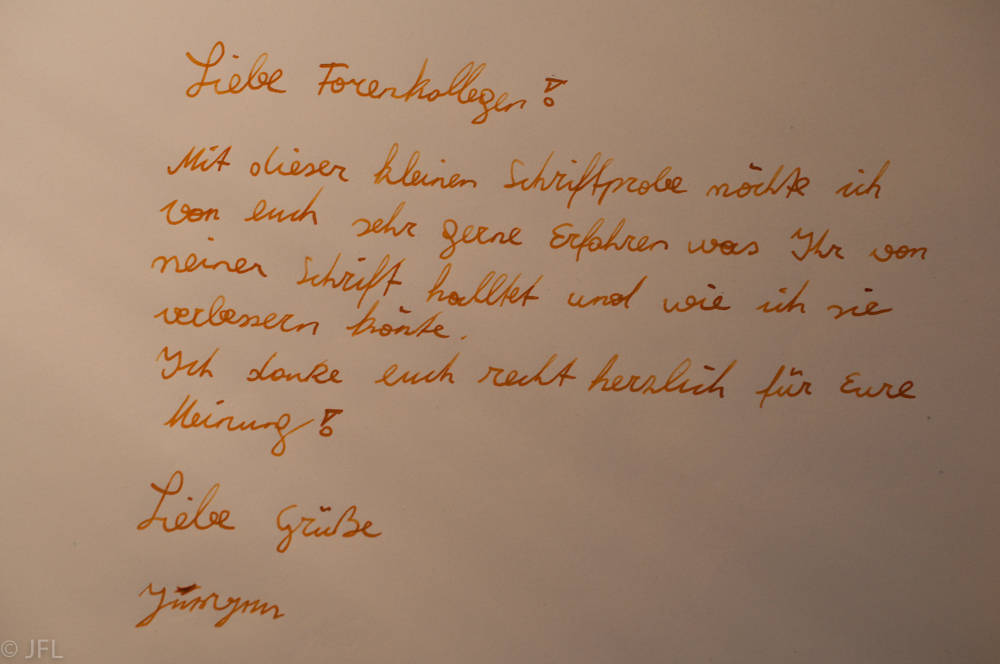 Liebe Forenkollegen!
Mit dieser kleinen Schriftprobe möchte ich
von euch sehr gerne Erfahren was Ihr von
meiner Schrift halltet und wie ich sie
verbessern könte.
Ich danke euch recht herzlich für Eure
Meinung!
Liebe Grüße
© JFL